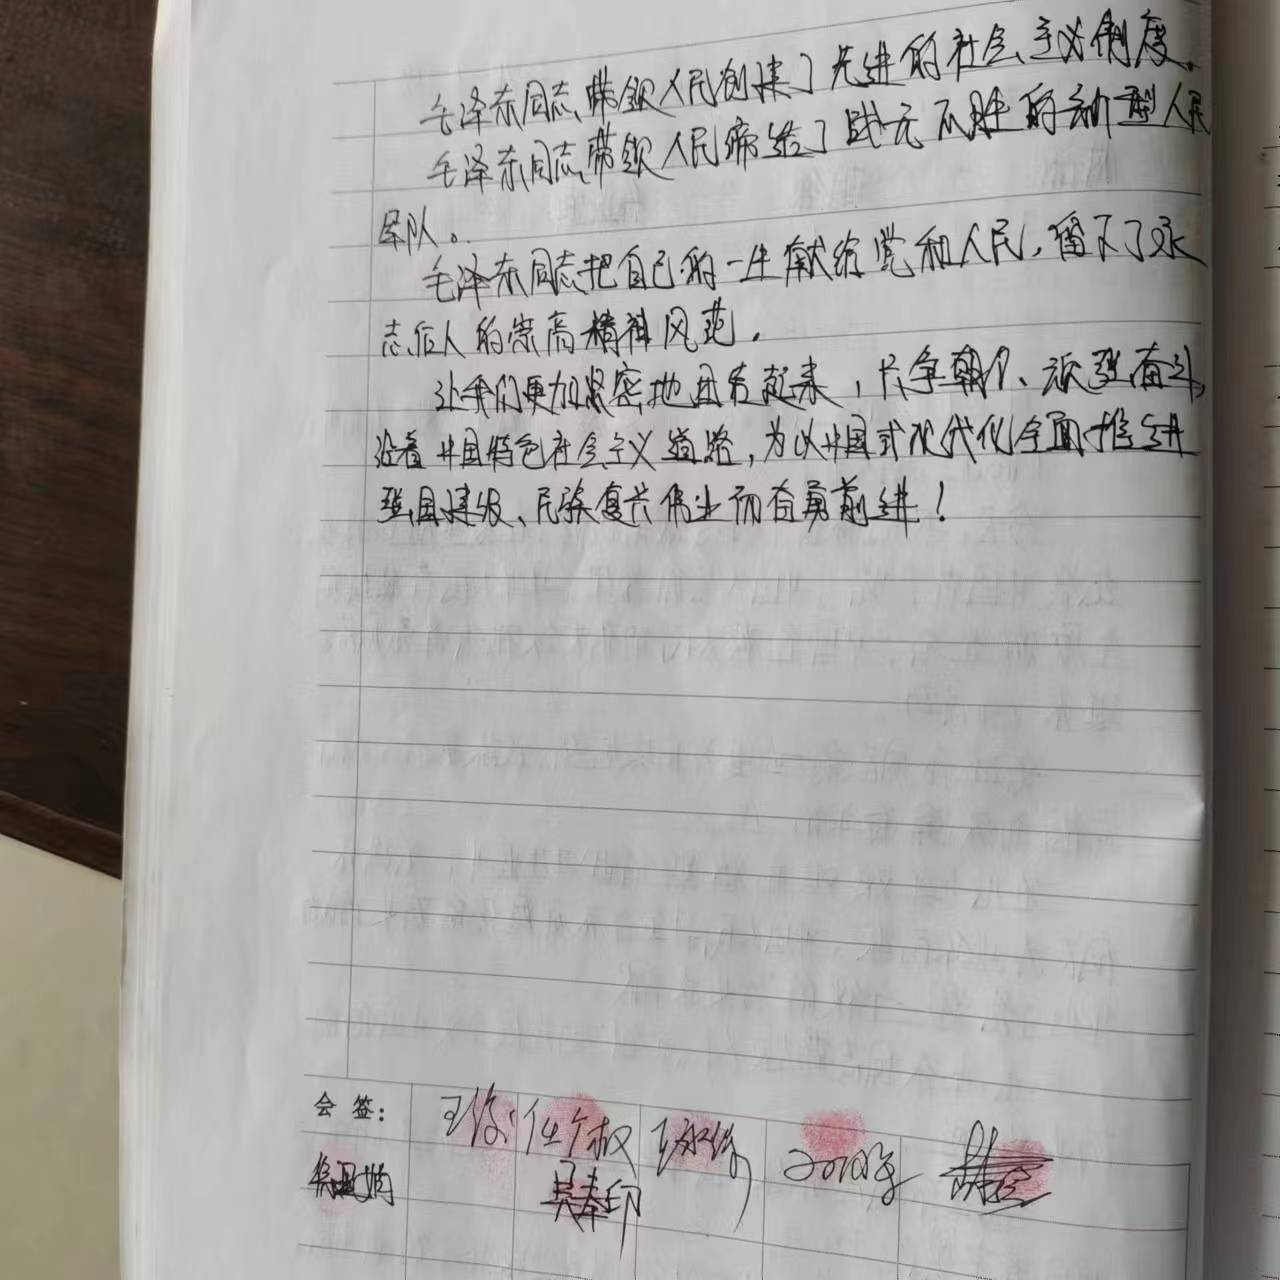 毛泽东同志带领人民创建了先进的社会主义制度。
毛泽东同志带领人民缔造了战无不胜的新型人民
军队。
毛泽东同志把自己的一生献给党和人民，留下了永
志后人的崇高精神风范。
让我们更加紧密地团结起来，只争朝夕、顽强奋斗，
沿着中国特色社会主义道路，为以中国式现代化全面推进
强国建设、民族复兴伟业而奋勇前进！
会签：